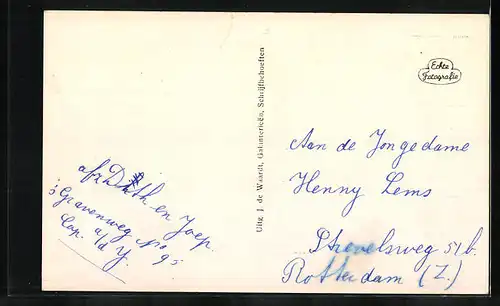 Echte
Fotografie
Uitg. J. de Waardt, Galanterieën, Schrijfbehoeften
Aan de Jongedame
Henny Lems
Strevelsweg 51b.
Rotterdam (Z.)
afz. Dith en Joep.
's Gravenweg No 95
Cap. a/d Y.